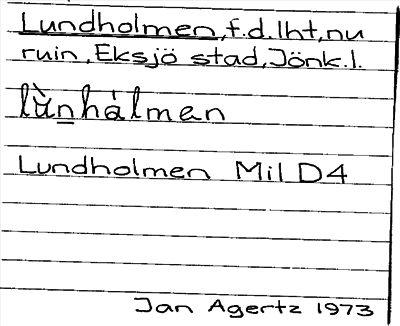 Lundholmen, f.d. lht, nu
ruin, Eksjö stad, Jönk.l.
lùn̲hålmen
Lundholmen Mil D4
Jan Agertz 1973